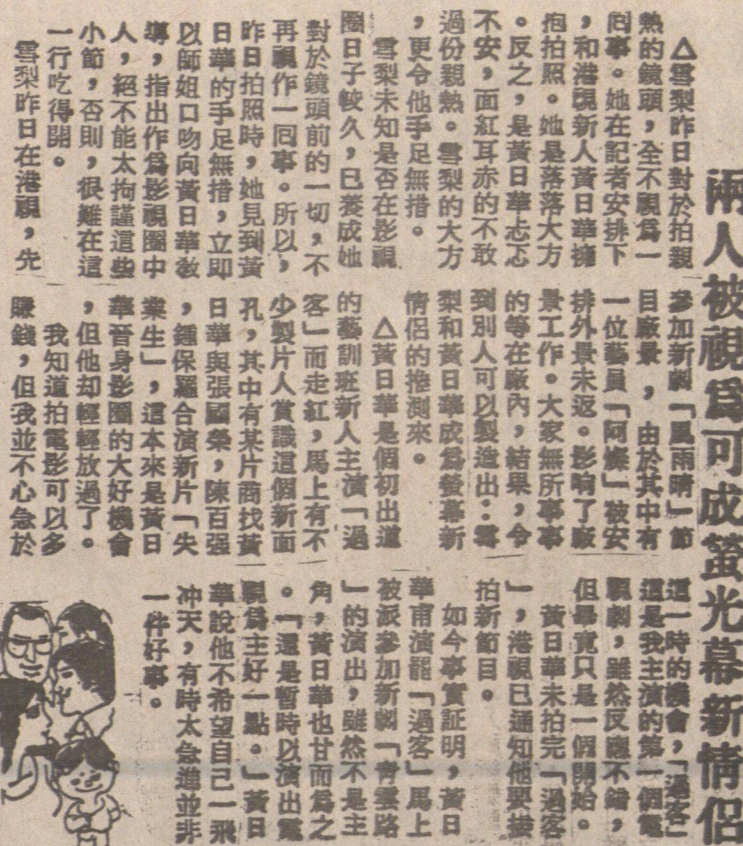 兩人被視爲可成螢光幕新情侶
△雪梨昨日對於拍親
熱的鏡頭，全不視爲一
回事。她在記者安排下
，和港視新人黃日華擁
抱拍照。她是落落大方
。反之，是黃日華忐忑
不安，面紅耳赤的不敢
過份親熱。雪梨的大方
，更令他手足無措。
雪梨未知是否在影視
圈日子較久，已養成她
對於鏡頭前的一切，不
再視作一回事。所以，
昨日拍照時，她見到黃
日華的手足無措，立即
以師姐口吻向黃日華敎
導，指出作爲影視圈中
人，絕不能太拘謹這些
小節，否則，很難在這
一行吃得開。
雪梨昨日在港視，先
參加新劇「風雨晴」節
目廠景，由於其中有
一位藝員「阿燦」被安
排外景未返。影响了廠
景工作。大家無所事事
的等在廠內，結果，令
到別人可以製造出：雪
梨和黃日華成爲螢幕新
情侶的推測來。
△黃日華是個初出道
的藝訓班新人主演「過
客」而走紅，馬上有不
少製片人賞識這個新面
孔，其中有某片商找黃
日華與張國榮，陳百强
，鍾保羅合演新片「失
業生」，這本來是黃日
華晉身影圈的大好機會
，但他却輕輕放過了。
我知道拍電影可以多
賺錢，但我並不心急於
這一時的機會，「過客」
這是我主演的第一個電
視劇，雖然反應不錯，
但畢竟只是一個開始。
黃日華未拍完「過客
」，港視已通知他要接
拍新節目。
如今事實証明，黃日
華甫演罷「過客」馬上
被派參加新劇「靑雲路
」的演出，雖然不是主
角，黃日華也甘而爲之
。「還是暫時以演出電
視爲主好一點。」黃日
華說他不希望自己一飛
冲天，有時太急進並非
一件好事。